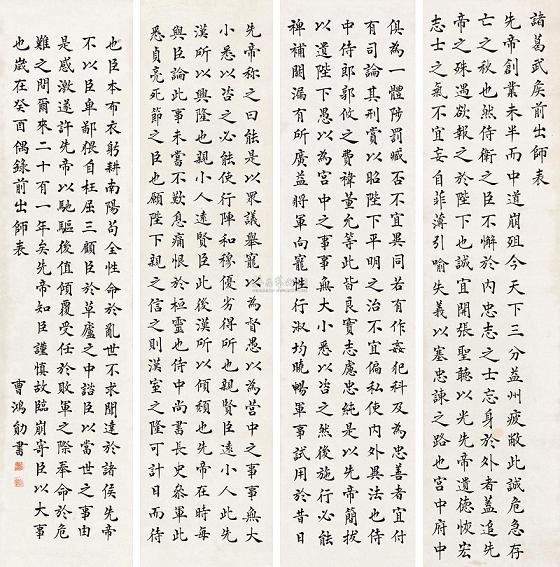 諸葛武矦前出師表
先帝創業未半而中道崩殂今天下三分益州疲敝此誠危急存
亡之秋也然侍衛之臣不懈於內忠志之士忘身於外者蓋追先
帝之殊遇欲報之於陛下也誠宜開張聖聽以光先帝遺德恢宏
志士之氣不宜妄自菲薄引喻失義以塞忠諫之路也宮中府中
俱為一體陟罰臧否不宜異同若有作姦犯科及為忠善者宜付
有司論其刑賞以昭陛下平明之治不宜偏私使內外異法也侍
中侍郎郭攸之費禕董允等此皆良實志慮忠純是以先帝簡拔
以遺陛下愚以為宮中之事事無大小悉以咨之然後施行必能
裨補闕漏有所廣益將軍向寵性行淑均曉暢軍事試用於昔日
先帝稱之曰能是以眾議舉寵以為督愚以為營中之事事無大
小悉以咨之必能使行陣和穆優劣得所也親賢臣遠小人此先
漢所以興隆也親小人遠賢臣此後漢所以傾頹也先帝在時每
與臣論此事未嘗不歎息痛恨於桓靈也侍中尚書長史參軍此
悉貞亮死節之臣也願陛下親之信之則漢室之隆可計日而待
也臣本布衣躬耕南陽苟全性命於亂世不求聞達於諸侯先帝
不以臣卑鄙猥自枉屈三顧臣於草廬之中諮臣以當世之事由
是感激遂許先帝以馳驅後值傾覆受任於敗軍之際奉命於危
難之間爾來二十有一年矣先帝知臣謹慎故臨崩寄臣以大事
也歲在癸酉偶錄前出師表
曹鴻勛書